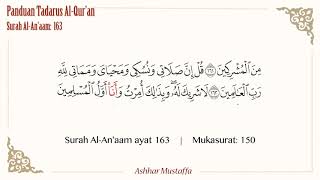 Panduan Tadarus Al-Qur'an
Surah Al-An'aam: 163
مِنَ الْمُشْرِكِينَ ١٦١ قُلْ إِنَّ صَلَاتِي وَنُسُكِي وَمَحْيَايَ وَمَمَاتِي لِلَّهِ
رَبِّ الْعَالَمِينَ ١٦٢ لَا شَرِيكَ لَهُ وَبِذَٰلِكَ أُمِرْتُ وَأَنَا أَوَّلُ الْمُسْلِمِينَ
Surah Al-An'aam ayat 163 | Mukasurat: 150
Ashhar Mustaffa